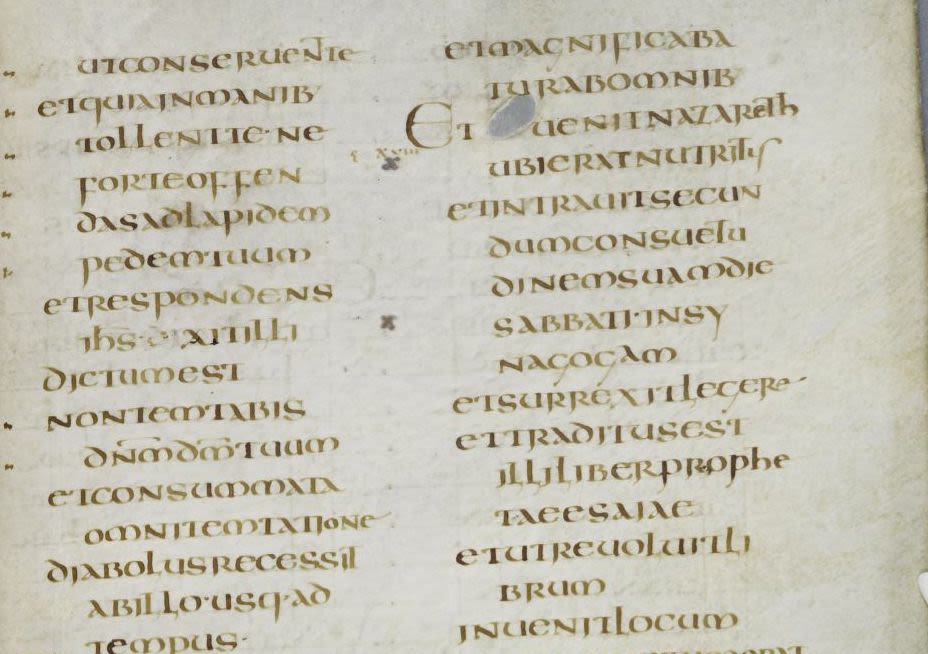 UTCONSERUENTTE
ETQUIAINMANIB
TOLLENTTE·NE
FORTEOFFEN
DASADLAPIDEM
PEDEMTUUM
ETRESPONDENS
IHS·AITILLI
DICTUMEST
NONTEMTABIS
DNMDMTUUM
ETCONSUMMATA
OMNITEMTATIONE
DIABOLUSRECESSIT
ABILLO·USQ·AD
TEMPUS·
ETMAGNIFICABA
TURABOMNIB
ET UENITNAZARETH
XVIII
UBIERATNUTRITUS
ETINTRAUITSECUN
DUMCONSUETU
DINEMSUAMDIE
SABBATI·INSY
NAGOGAM
ETSURREXITLEGERE
ETTRADITUSEST
ILLILIBERPROPHE
TAEESAIAE
ETUTREUOLUITLI
BRUM
INUENITLOCUM